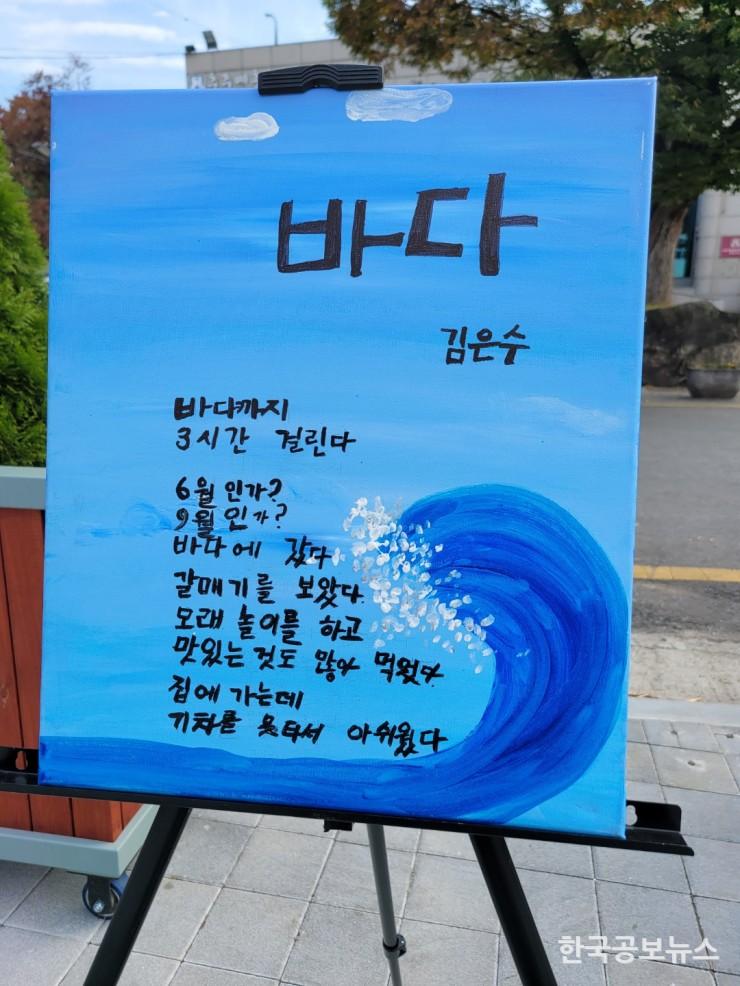 바다
김은수
바다까지
3시간 걸린다
6월인가?
9월인가?
바다에 갔다.
갈매기를 보았다.
모래놀이를 하고
맛있는것도 많이 먹었다.
집에 가는데
기차를 못타서 아쉬웠다
한국공보뉴스